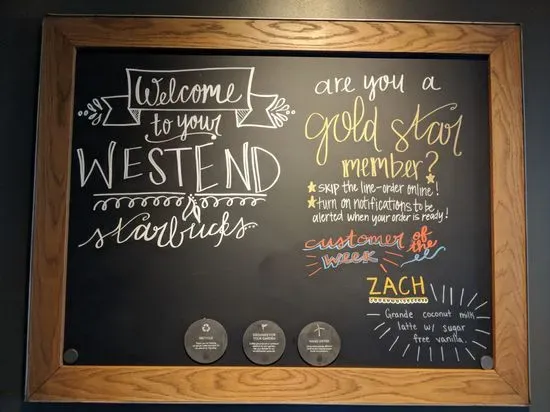 Welcome
to your
WESTEND
starbucks
are you a
gold star
member?
★ skip the line-order online!
★ turn on notifications to be
alerted when your order is ready!
customer of the
week
ZACH
Grande coconut milk
latte w/ sugar
free vanilla.
RECYCLE
GROUNDS FOR
YOUR GARDEN